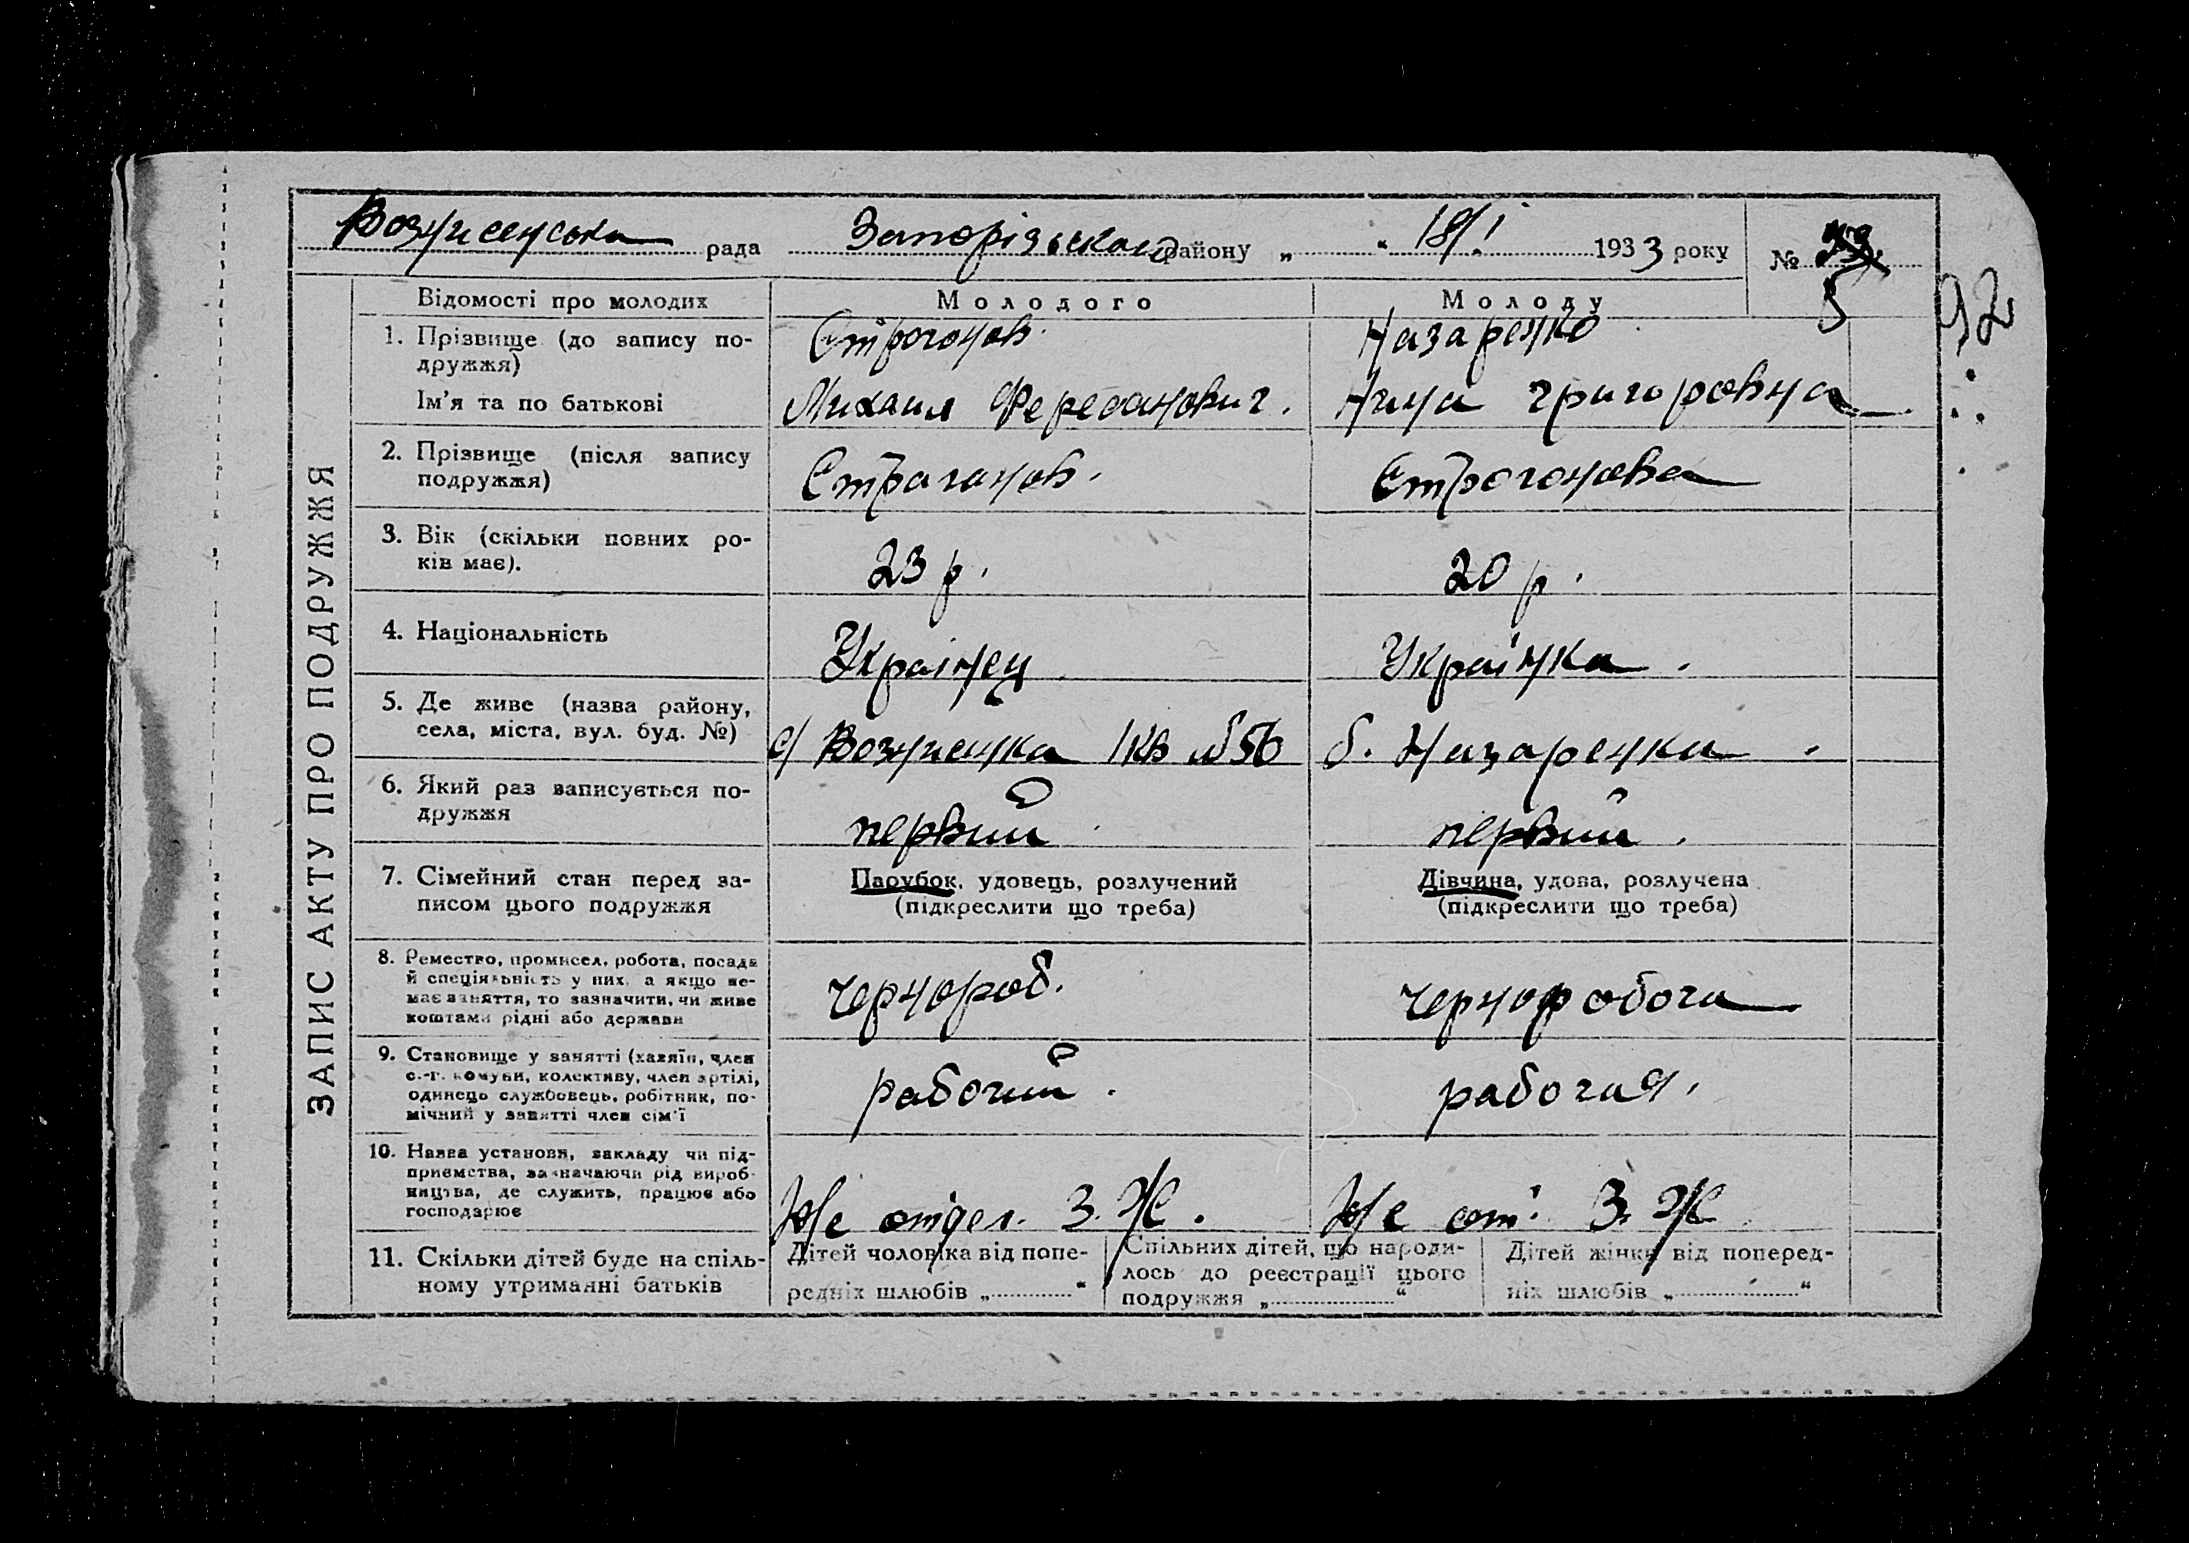 Вознисенська рада Запорізьского району „ “ 18/I 1933 року № 5
92
ЗАПИС АКТУ ПРО ПОДРУЖЖЯ
Відомості про молодих Молодого Молоду
1. Прізвище (до запису по- Строгонов. Назаренко
дружжя)
Ім'я та по батькові Михаил Нина Григоровна
2. Прізвище (після запису Страганов. Строгонова
подружжя)
3. Вік (скільки повних ро- 23 р. 20 р.
ків має).
4. Національність Українец Українка.
5. Де живе (назва району,
села, міста, вул. буд. №) с/ Вознисенка 1 кв № 56 б. Назаренка.
6. Який раз записується по- первий первий.
дружжя
7. Сімейний стан перед за- Парубок, удовець, розлучений Дівчина, удова, розлучена
писом цього подружжя (підкреслити що треба) (підкреслити що треба)
8. Ремество, промисел, робота, посада
й спеціяльність у них, а якщо не- чернороб. черноробоча
має заняття, то зазначити, чи живе
коштами рідні або держави
9. Становище у занятті (хазяїн, член
с.-г. комуни, колективу, член артілі, рабочий. рабочая.
одинець службовець, робітник, по-
мічний у занятті член сім'ї
10. Назва установи, закладу чи під-
приємства, зазначаючи рід вироб-
ництва, де служить, працює або отдел. З. Ж. от. З. Ж
господарює
11. Скільки дітей буде на спіль- Дітей чоловіка від попе- Спільних дітей, що народи- Дітей жінки від поперед-
ному утриманні батьків редніх шлюбів „ “ лось до реєстрації цього ніх шлюбів „ “
подружжя „ “